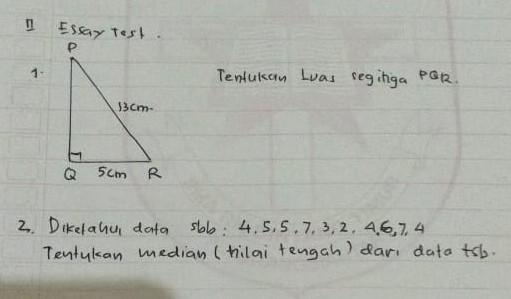 II Essay Test.
P
1. Tentukan Luas segitiga PQR.
13cm.
Q 5cm R
2. Diketahui data sbb: 4, 5, 5, 7, 3, 2, 4, 6, 7, 4
Tentukan median (nilai tengah) dari data tsb.